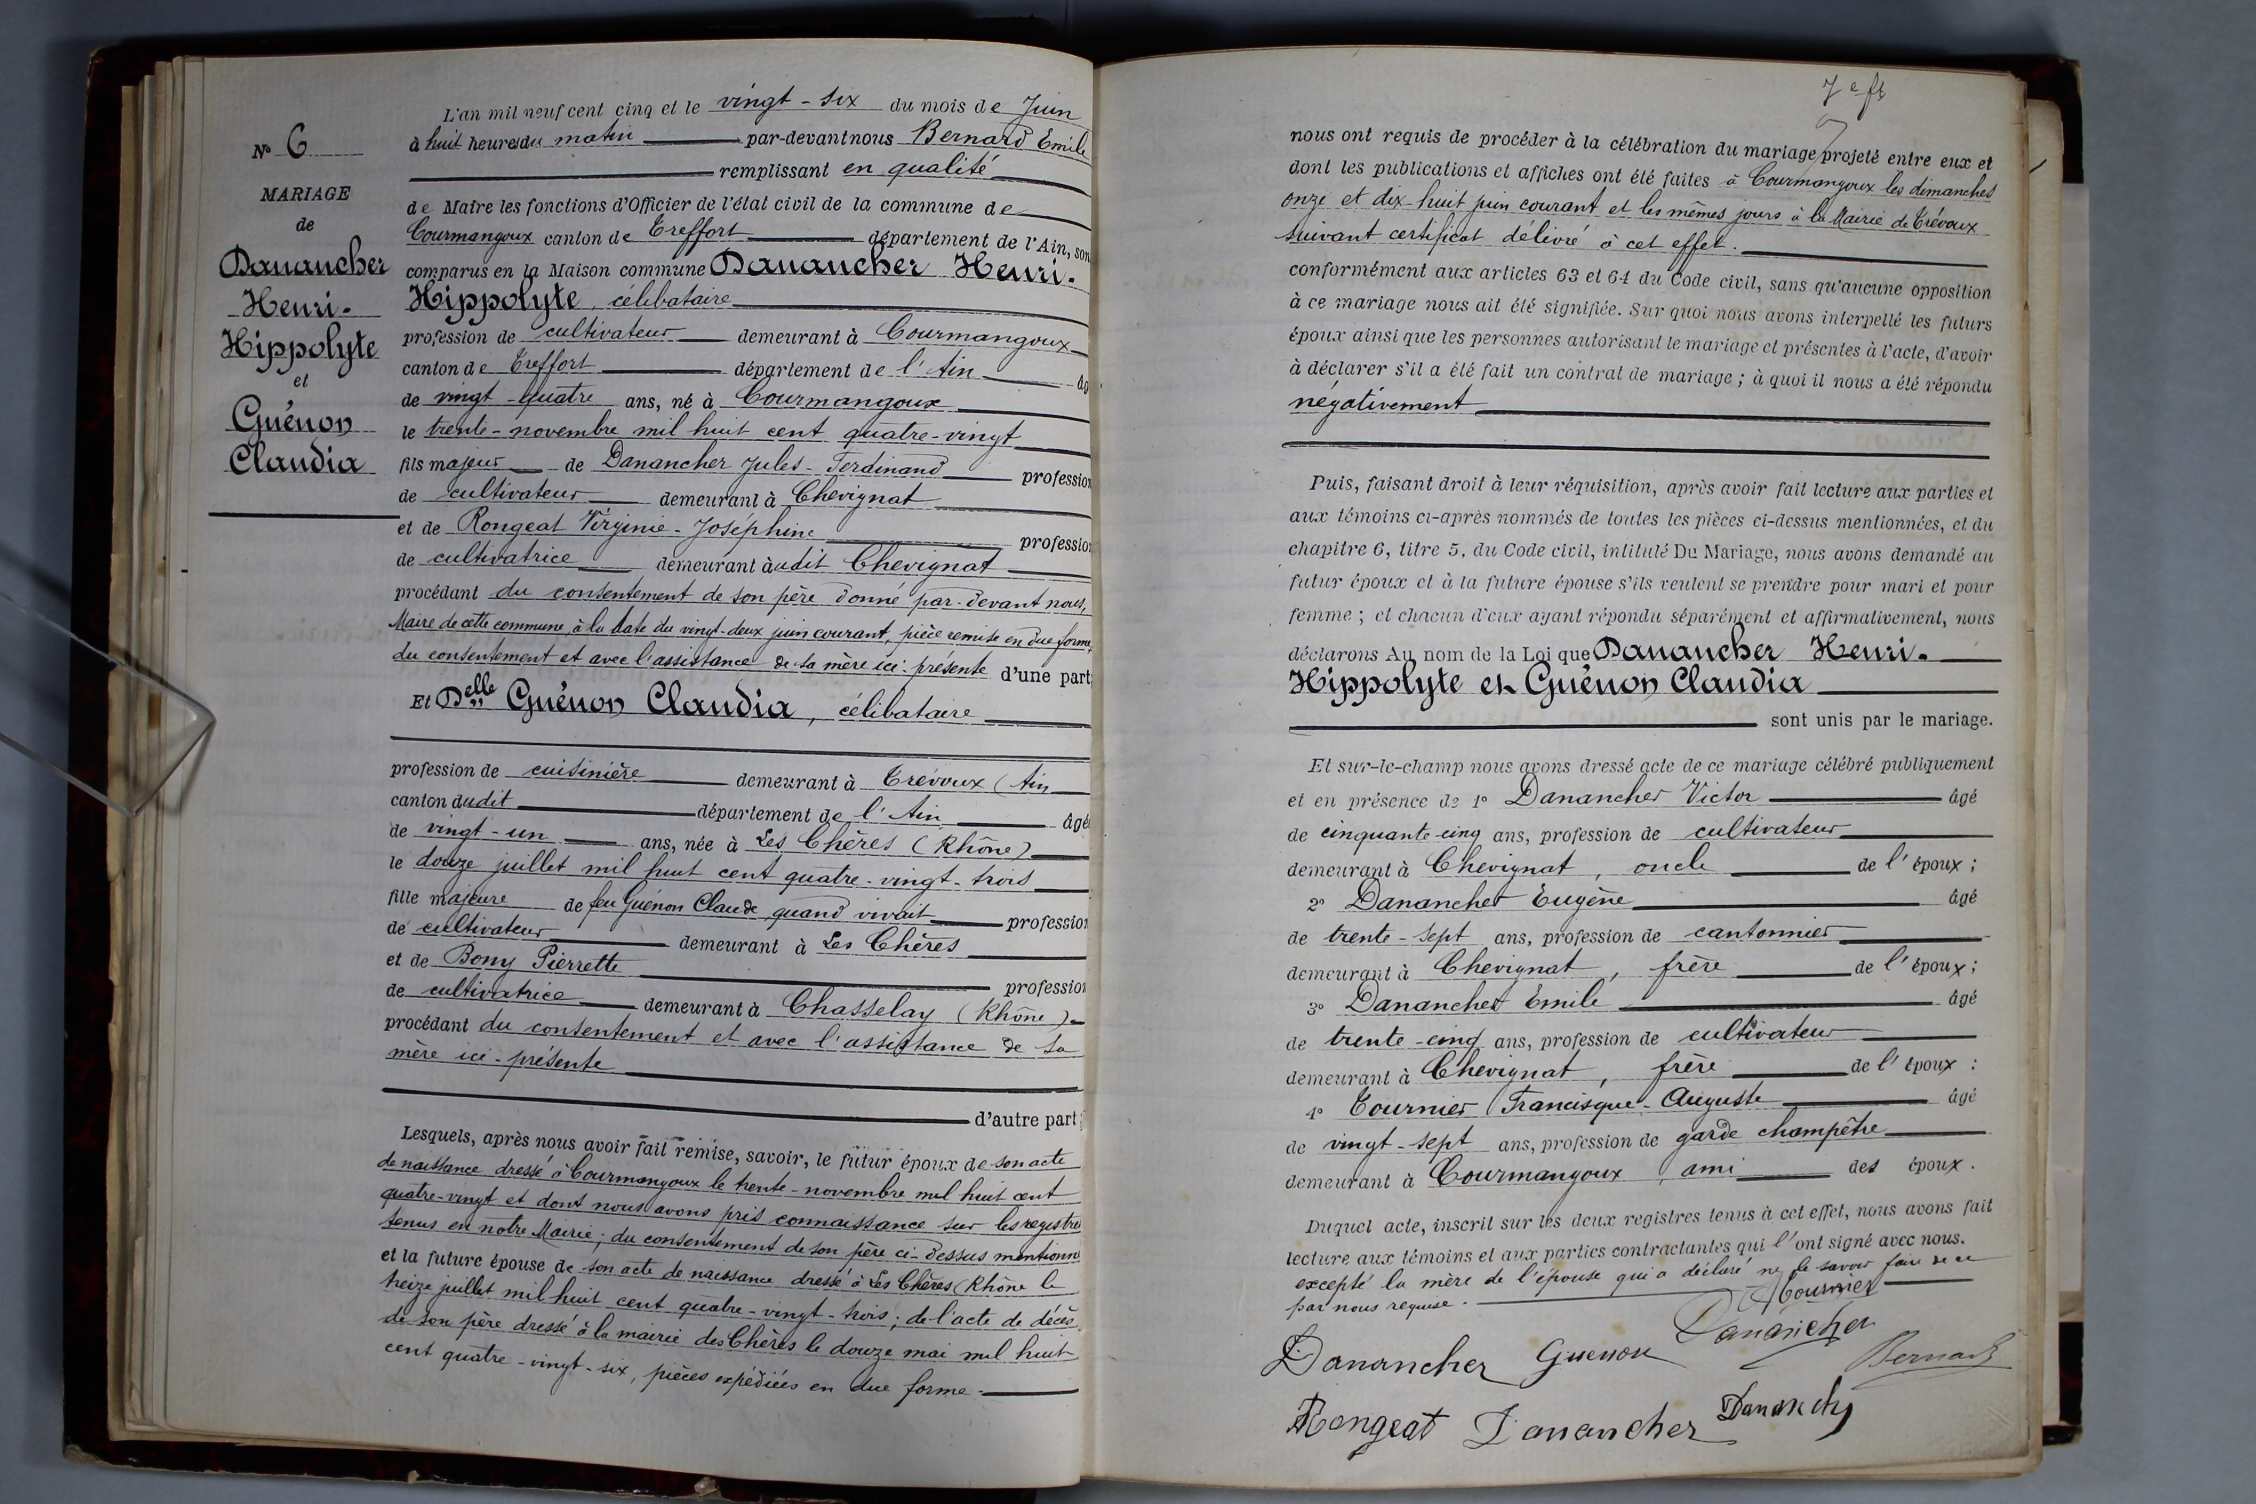 N° 6
MARIAGE
de
Danancher
Henri-
Hippolyte
et
Guénon
Claudia
L'an mil neuf cent cinq et le vingt-six du mois de Juin
à huit heures du matin par-devant nous Bernard Emile
remplissant en qualité
de Maire les fonctions d'Officier de l'état civil de la commune de
Courmangoux canton de Treffort département de l'Ain, son
comparus en la Maison commune Danancher Henri-
Hippolyte, célibataire
profession de cultivateur demeurant à Courmangoux
canton de Treffort département de l'Ain âg
de vingt-quatre ans, né à Courmangoux
le trente-novembre mil huit cent quatre-vingt
fils majeur de Danancher Jules-Ferdinand profession
de cultivateur demeurant à Chevignat
et de Rongeat Virginie-Joséphine profession
de cultivatrice demeurant audit Chevignat
procédant du consentement de son père donné par-devant nous,
Maire de cette commune, à la date du vingt-deux juin courant, pièce remise en due forme,
du consentement et avec l'assistance de sa mère ici-présente d'une part
Et Delle Guénon Claudia, célibataire
profession de cuisinière demeurant à Trévoux (Ain
canton dudit département de l'Ain âgée
de vingt-un ans, née à Les Chères (Rhône)
le douze juillet mil huit cent quatre-vingt-trois
fille majeure de feu Guénon Claude, quand vivait profession
de cultivateur demeurant à Les Chères
et de Bony Pierrette profession
de cultivatrice demeurant à Chasselay (Rhône)
procédant du consentement et avec l'assistance de sa
mère ici-présente
d'autre part;
Lesquels, après nous avoir fait remise, savoir, le futur époux de son acte
de naissance dressé à Courmangoux le trente-novembre mil huit cent
quatre-vingt et dont nous avons pris connaissance sur les registres
tenus en notre Mairie; du consentement de son père ci-dessus mentionné
et la future épouse de son acte de naissance dressé à Les Chères (Rhône le
treize juillet mil huit cent quatre-vingt-trois; de l'acte de décès
de son père dressé à la mairie des Chères le douze mai mil huit
cent quatre-vingt-six, pièces expédiées en due forme.
7e ft
nous ont requis de procéder à la célébration du mariage projeté entre eux et
dont les publications et affiches ont été faites à Courmangoux les dimanches
onze et dix-huit juin courant et les mêmes jours à la Mairie de Trévoux
suivant certificat délivré à cet effet.
conformément aux articles 63 et 64 du Code civil, sans qu'aucune opposition
à ce mariage nous ait été signifiée. Sur quoi nous avons interpellé les futurs
époux ainsi que les personnes autorisant le mariage et présentes à l'acte, d'avoir
à déclarer s'il a été fait un contrat de mariage; à quoi il nous a été répondu
négativement
Puis, faisant droit à leur réquisition, après avoir fait lecture aux parties et
aux témoins ci-après nommés de toutes les pièces ci-dessus mentionnées, et du
chapitre 6, titre 5, du Code civil, intitulé Du Mariage, nous avons demandé au
futur époux et à la future épouse s'ils veulent se prendre pour mari et pour
femme; et chacun d'eux ayant répondu séparément et affirmativement, nous
déclarons Au nom de la Loi que Danancher Henri-
Hippolyte et Guénon Claudia
sont unis par le mariage.
Et sur-le-champ nous avons dressé acte de ce mariage célébré publiquement
et en présence de 1° Danancher Victor âgé
de cinquante-cinq ans, profession de cultivateur
demeurant à Chevignat, oncle de l'époux;
2° Danancher Eugène âgé
de trente-sept ans, profession de cantonnier
demeurant à Chevignat, frère de l'époux;
3° Danancher Emile âgé
de trente-cinq ans, profession de cultivateur
demeurant à Chevignat, frère de l'époux:
4° Tournier Francisque-Auguste âgé
de vingt-sept ans, profession de garde champêtre
demeurant à Courmangoux, ami des époux.
Duquel acte, inscrit sur les deux registres tenus à cet effet, nous avons fait
lecture aux témoins et aux parties contractantes qui l'ont signé avec nous.
excepté la mère de l'épouse qui a déclaré ne le savoir faire de ce
par nous requise.
Tournier
Danancher
Danancher Guenon
Bernard
Rongeat Danancher Dananch